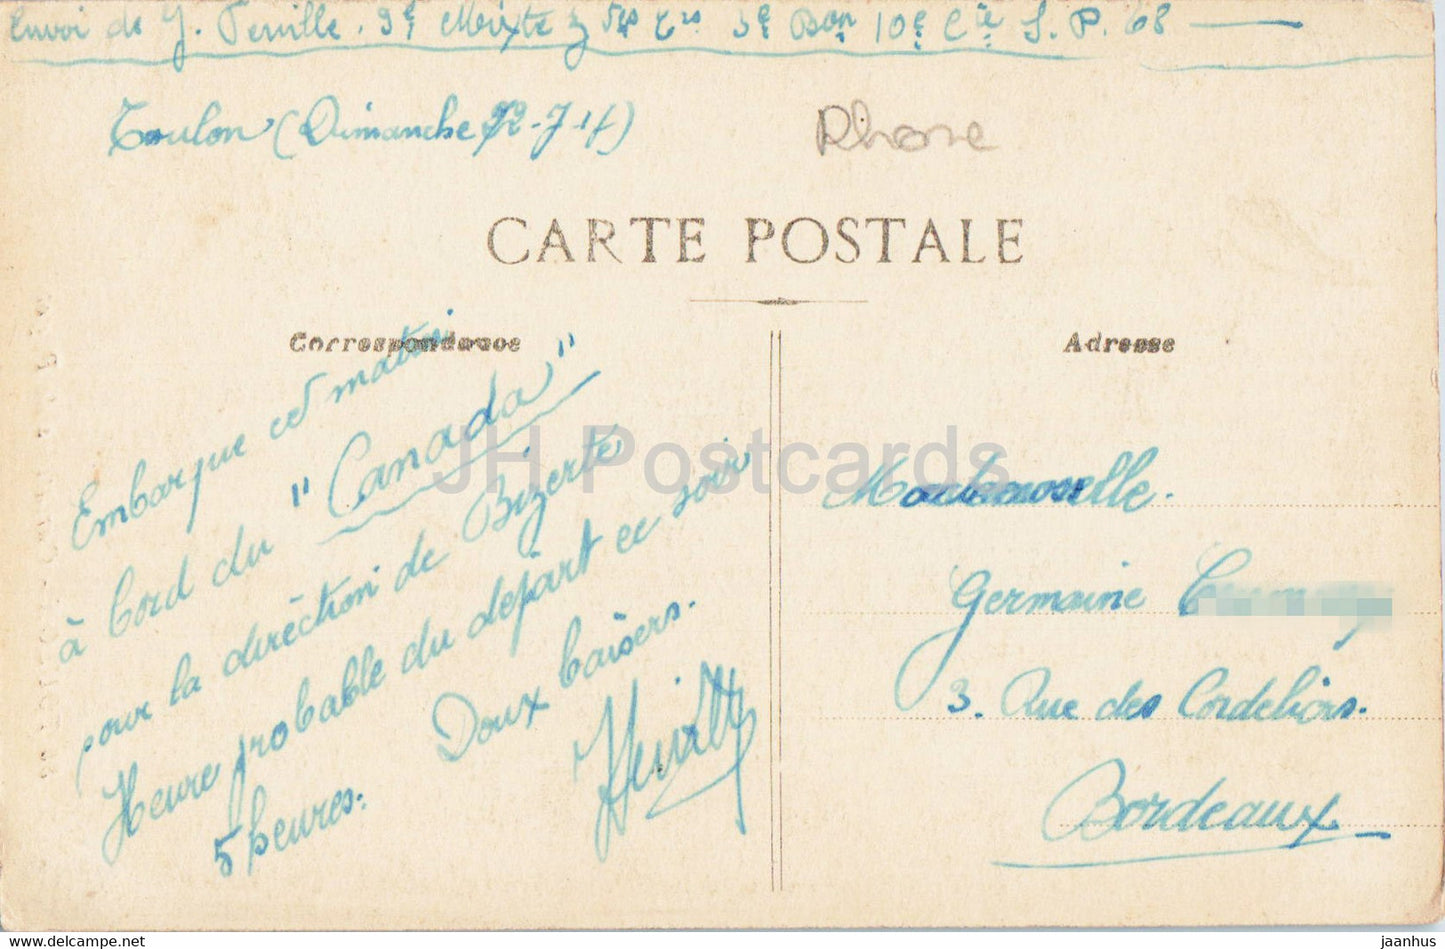 Envoi de J. Perville. 9e Mixte 3e Bon 10e Cie S. P. 68
Toulon (Dimanche 22-7-17)
Rhone
CARTE POSTALE
Correspondance
Adresse
Embarque cet matin
à bord du "Canada"
pour la diréction de Bizerte
Heure probable du départ ce soir
5 heures. Doux baisers.
Mademoiselle.
Germaine
3. Rue des Cordeliers.
Bordeaux
JH Postcards
hip-stamp.com
jaanhus